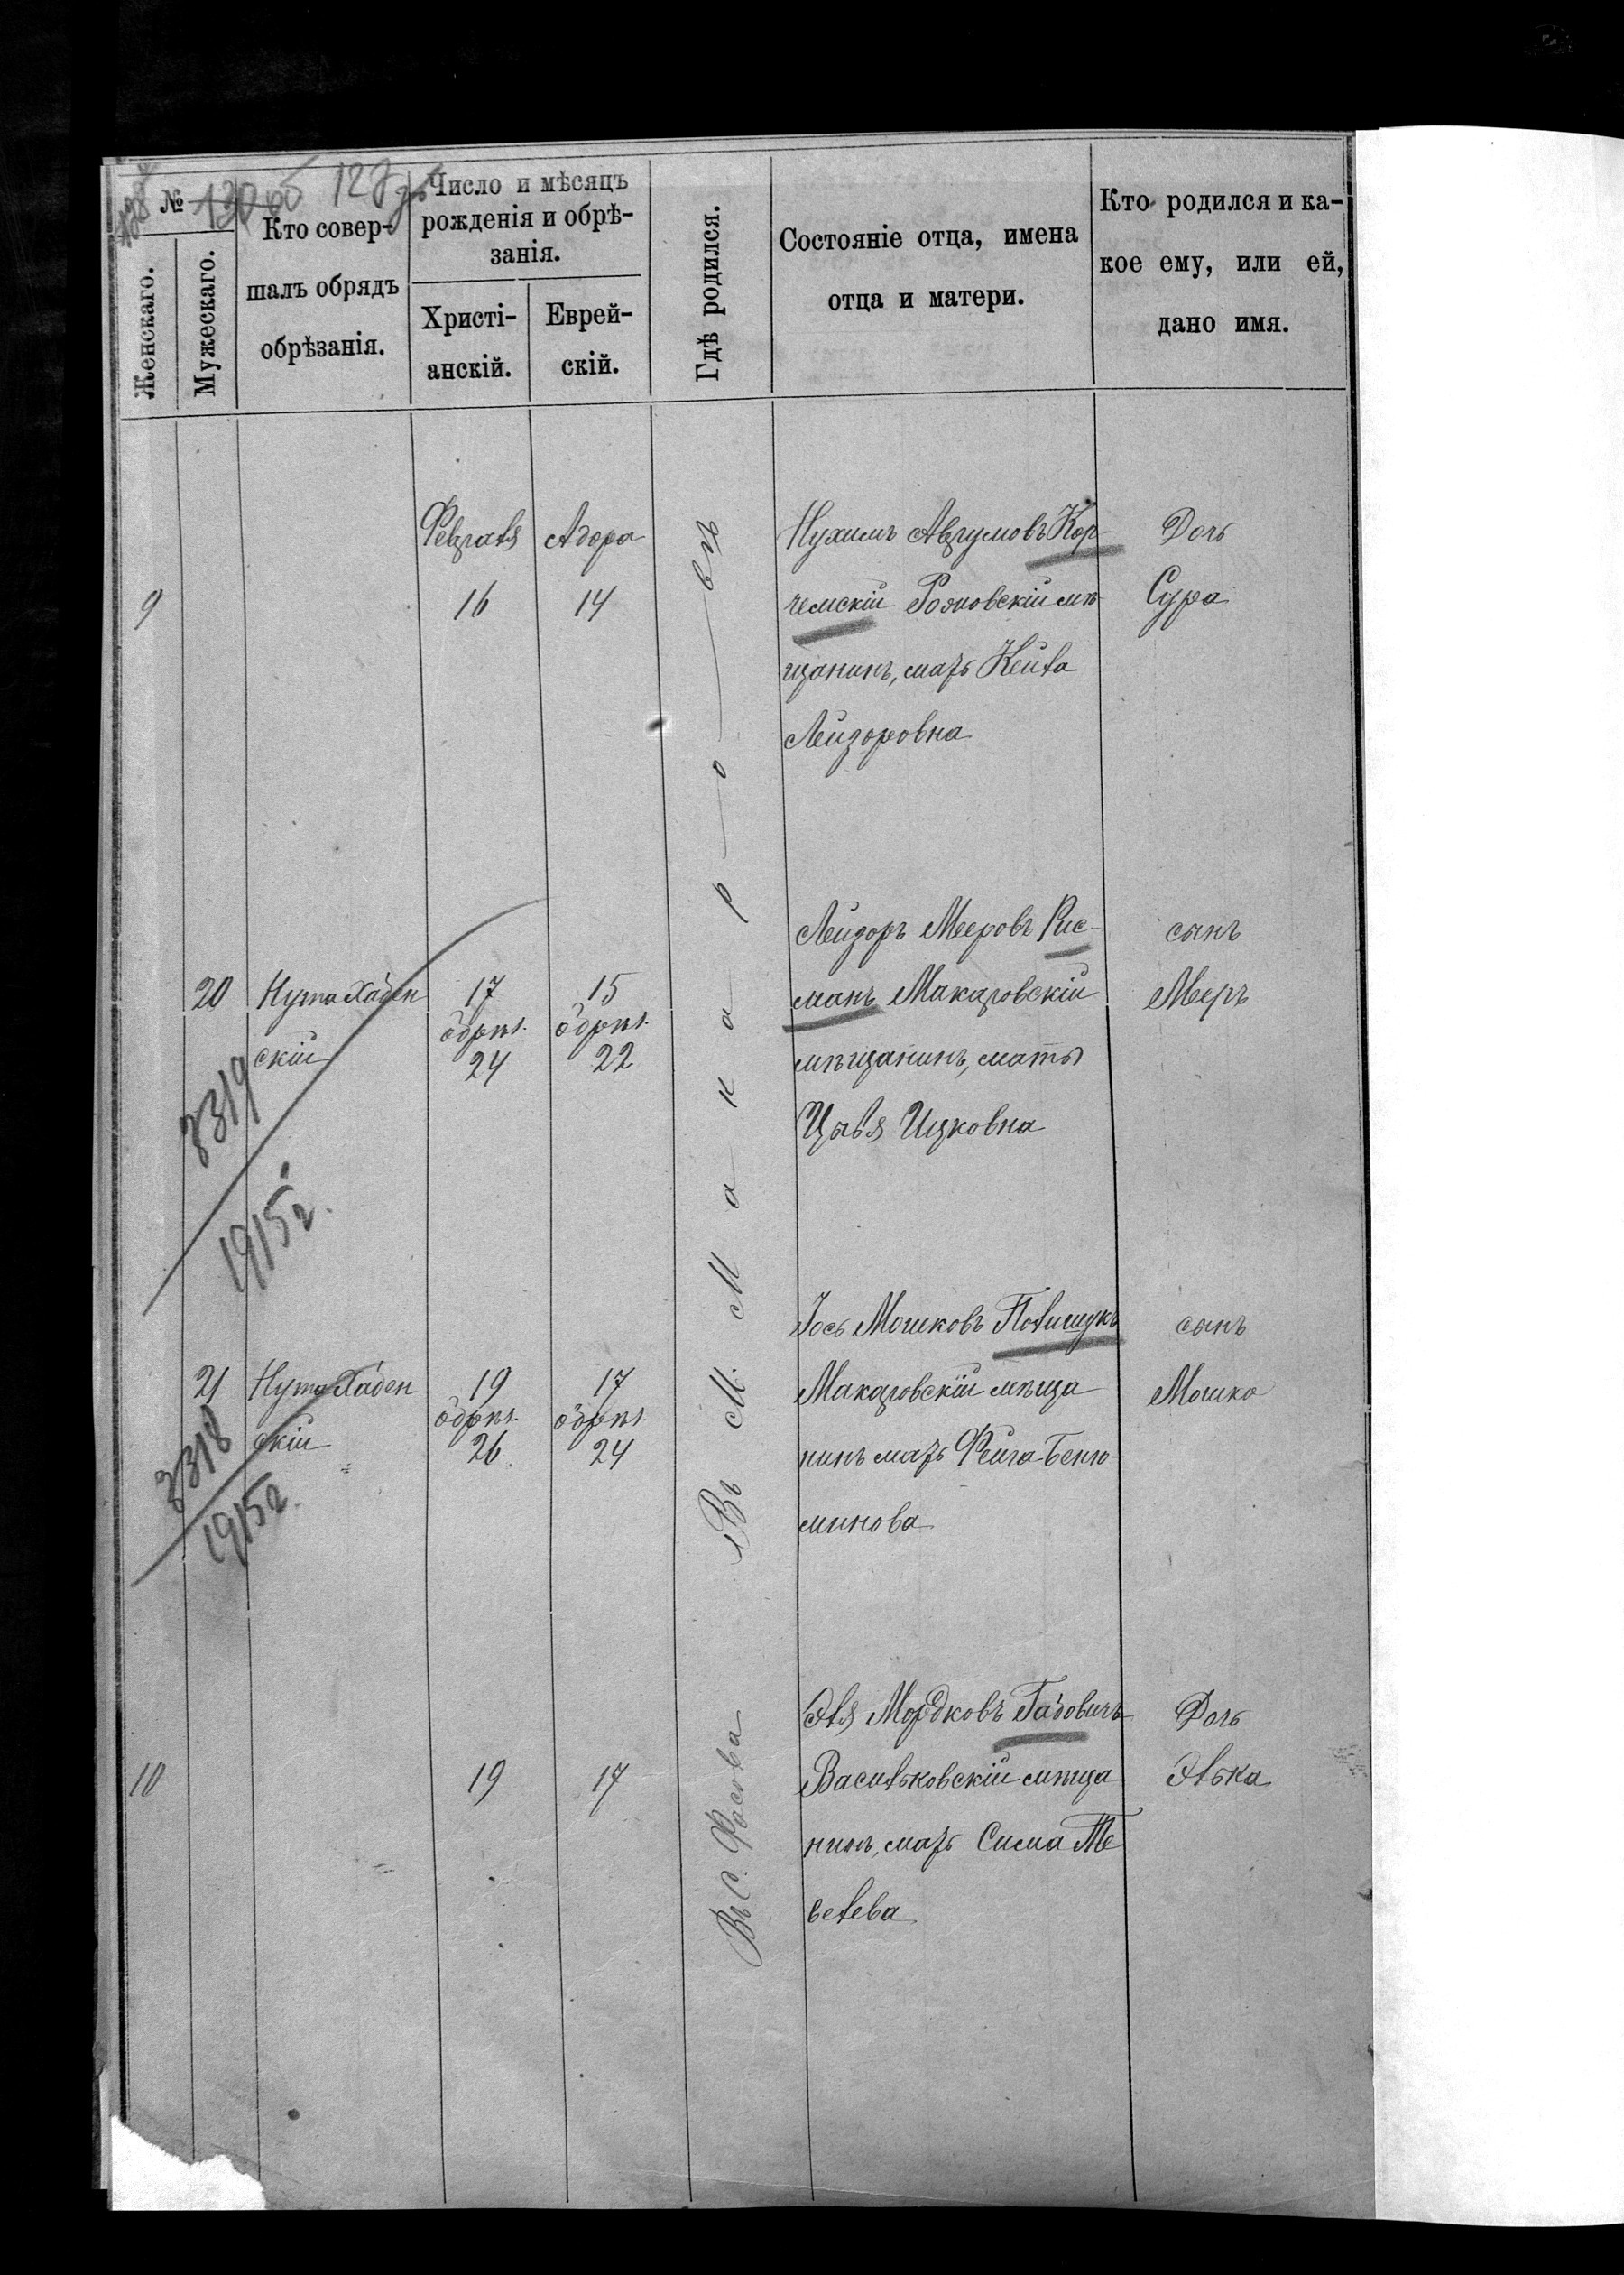 № 130 об 127
Женскаго.
Мужескаго.
Кто совер-
шалъ обрядъ
обрѣзанія.
Число и мѣсяцъ
рожденія и обрѣ-
занія.
Христі-
анскій.
Еврей-
скій.
Гдѣ родился.
Состояніе отца, имена
отца и матери.
Кто родился и ка-
кое ему, или ей,
дано имя.
Въ М. Макаровѣ
9
Февраля
16
Адора
14
Нухимъ Аврумовъ Кор-
чемскій мѣ-
щанинъ, мать Кейла
Лейзоровна
Дочь
Сура
20
Нута Хабен
скій
17
обрѣз.
24
15
обрѣз.
22
Лейзоръ Мееровъ Рис-
манъ Макаровскій
мѣщанинъ, мать
Цивля Ицковна
сынъ
Мееръ
3319
1915г.
21
Нута Хабен
скій
19
обрѣз.
26
17
обрѣз.
24
Іось Мошковъ Полищукъ
Макаровскій мѣща
нинъ мать Фейга Беню-
минова
сынъ
Мошко
3318
1915г.
10
19
17
Въ С.
Эля Мордковъ Габовичъ
Васильковскій мѣща
нинъ, мать Сима Те
велева
Дочь
Элька